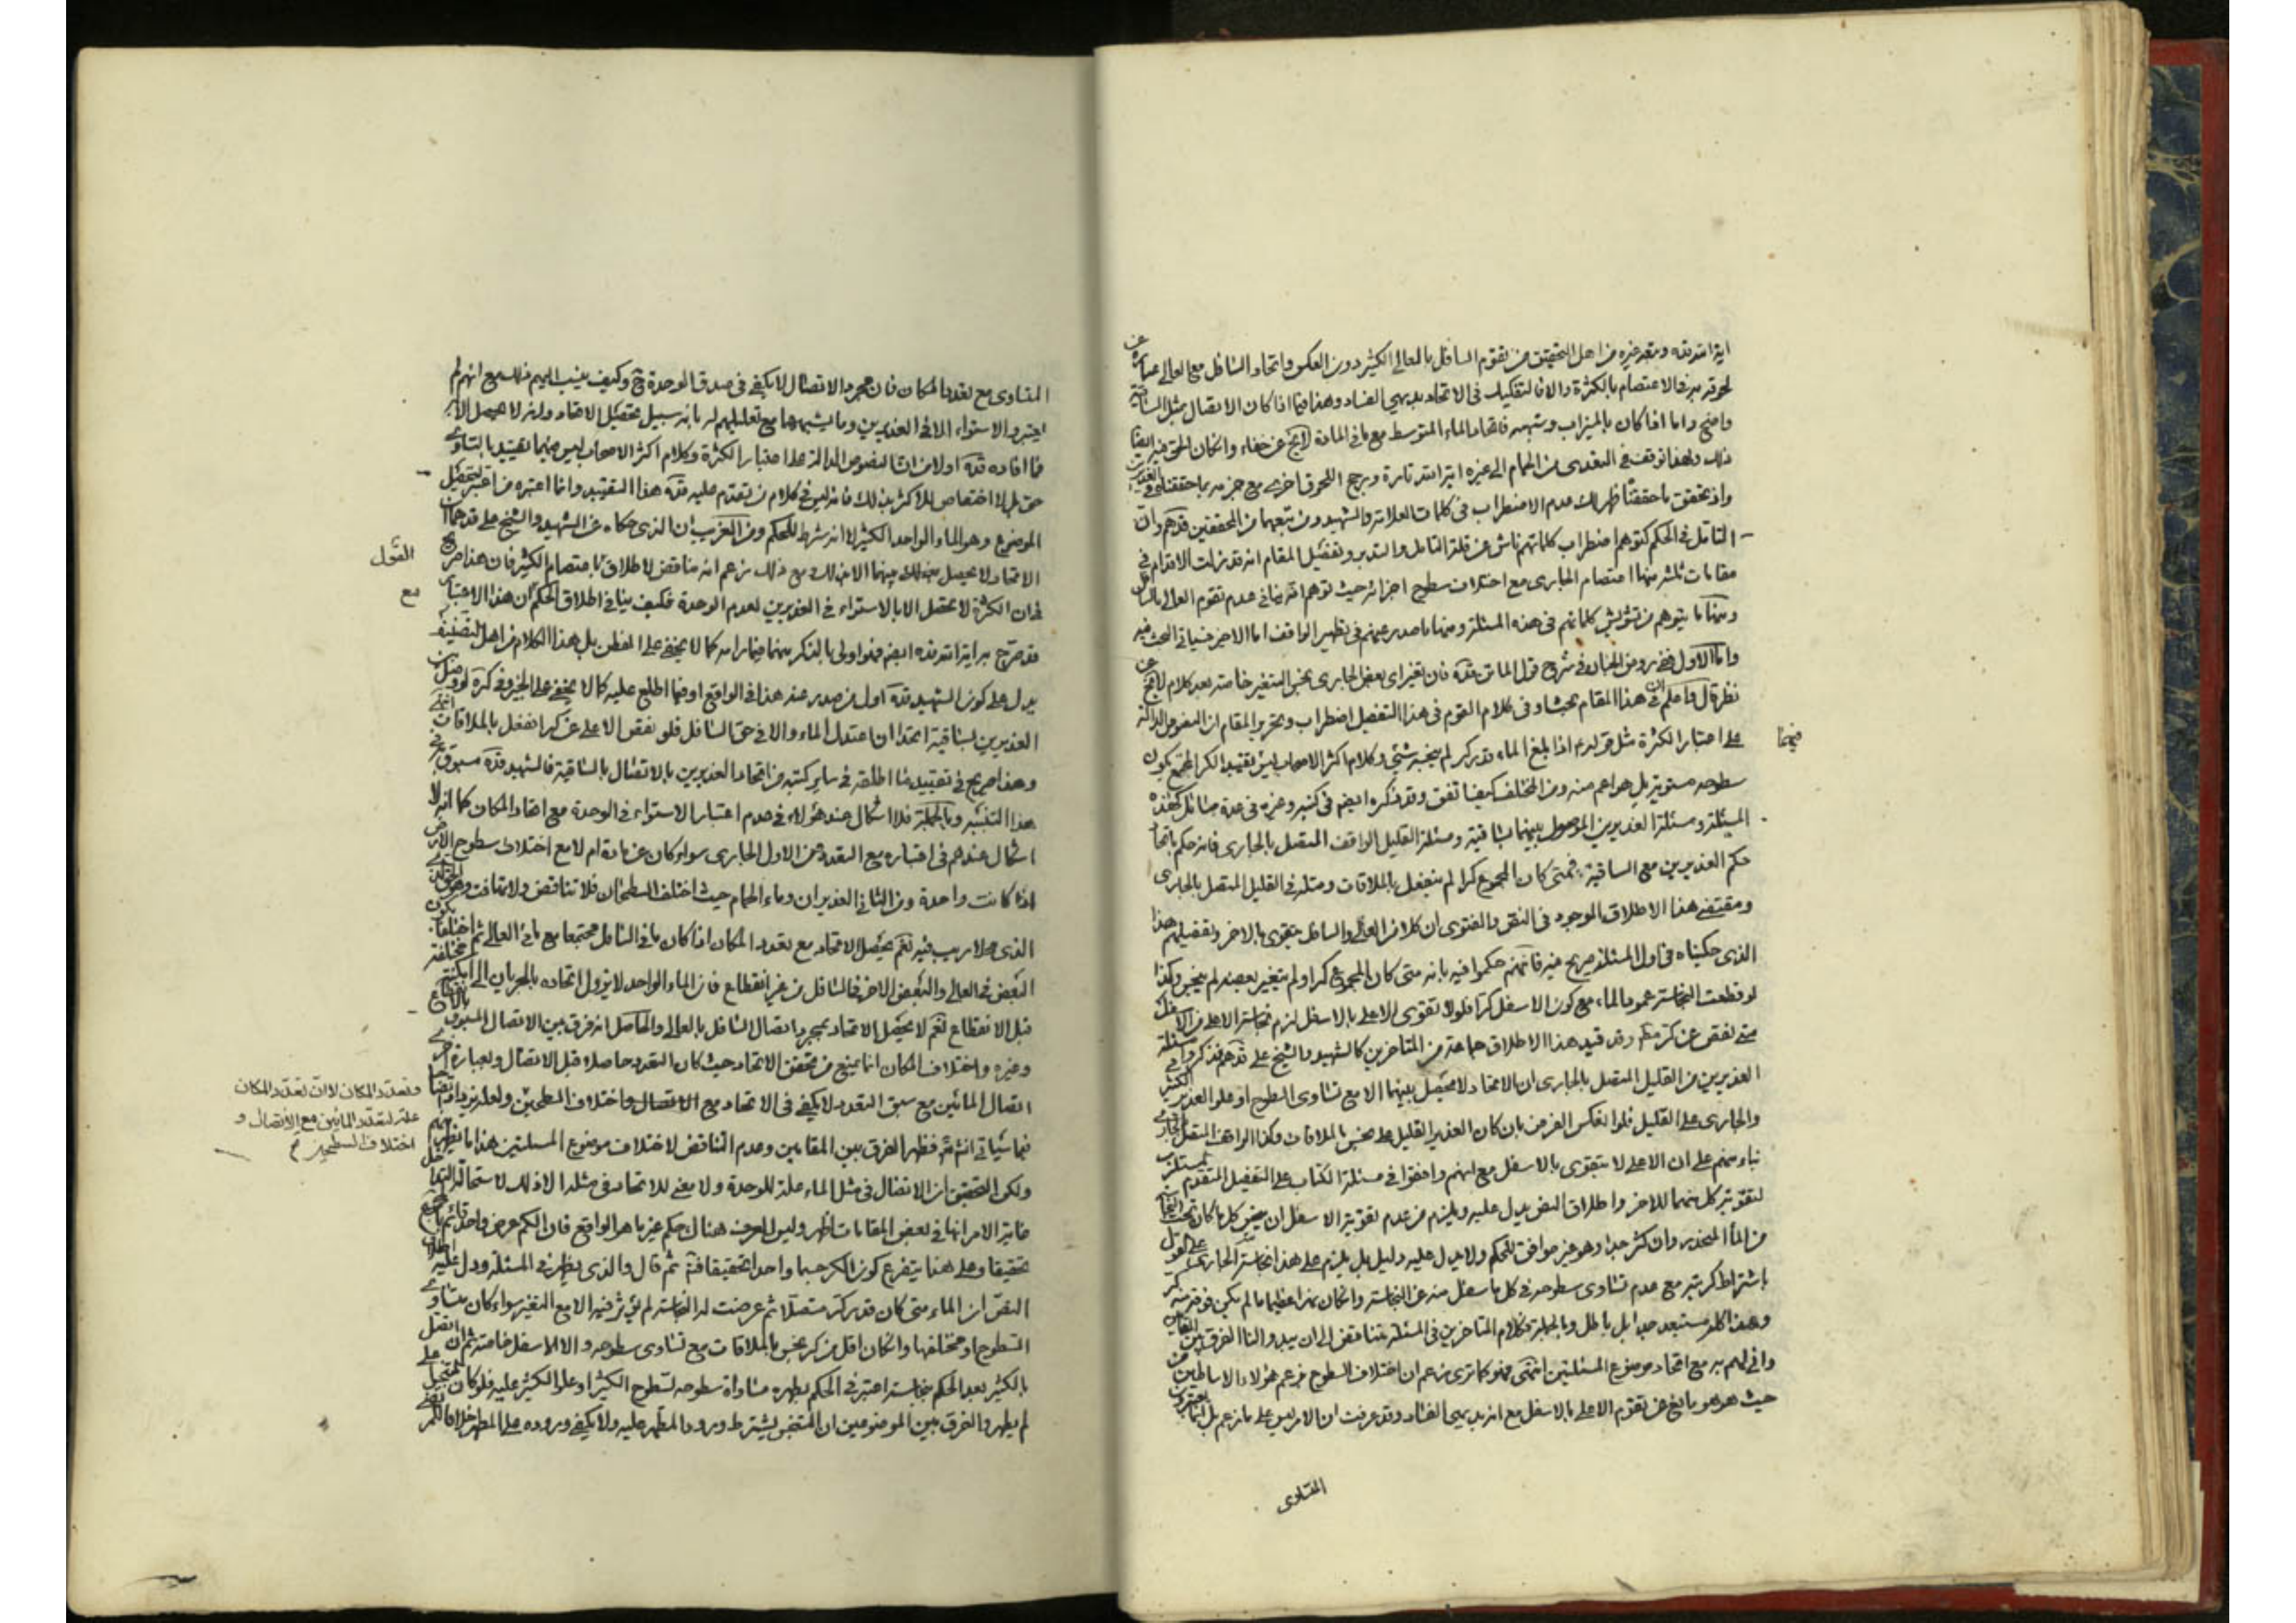 اية الله قده وتبعه غيره من اهل التحقيق من تقوم السافل بالعالى الكثير دون العكس واتحاد السافل مع العالى عبارة عن
لحوقه به فى الاعتصام بالكثرة والا فالتفكيك فى الاتحاد بديهى الفساد وهذا فيما اذا كان الاتصال بمثل الساقية
واضح واما اذا كان بالميزاب وشبهه فاتحاد الماء المتوسط مع ما فى المادة لا يخ عن خفاء وان كان الحق فيه ايضا
ذلك ولهذا توقف فى التعدى من الحمام الى غيره اية الله تارة ورجح اللحوق اخرى مع جزمه بما حققناه فى الغديرين
واذ تحقق ما حققنا ظهر لك عدم الاضطراب فى كلمات العلامة والشهيد ومن تبعهما من المحققين قدهم وان
التامل فى الحكم كتوهم اضطراب كلماتهم ناش عن قلة التامل والتدبر وتفصيل المقام انه قد زلت الاقدام فى
مقامات ثلثة منها اعتصام الجارى مع اختلاف سطوح اجزائه حيث توهم انه ينافى عدم تقوم العالى بالسافل
ومنها ما يتوهم من تشويش كلماتهم فى هذه المسئلة ومنها ما صدر عنهم فى تطهير الواقف اما الاخير فسياتى البحث فيه
واما الاول ففى روض الجنان فى شرح قول الماتن قده فان تغير اى بعض الجارى نجس المتغير خاصة بعد كلام لا يخ عن
نظر قال واعلم ان فى هذا المقام بحثا وفى كلام القوم فى هذا التفصيل اضطراب وتحرير المقام ان النصوص الدالة
على اعتبار الكثرة مثل قوله ع اذا بلغ الماء قدر كر لم ينجسه شئ وكلام اكثر الاصحاب ليس فيهما تقييد الكر المجتمع بكون
سطوحه مستوية بل هو اعم منه ومن المختلف كيف اتفق وقد ذكره ايضا فى كتبه وغيره فى عدة مسائل كهذه
المسئلة ومسئلة الغديرين الموصول بينهما بساقية ومسئلة القليل الواقف المتصل بالجارى فانه حكم باتحاد
حكم الغديرين مع الساقية فمتى كان المجموع كرا لم ينفعل بالملاقات ومثله فى القليل المتصل بالجارى
ومقتضى هذا الاطلاق الموجود فى النص والفتوى ان كلا من العالى والسافل يتقوى بالاخر وتفصيلهم هذا
الذى حكيناه فى اول المسئلة صريح فيه فانهم حكموا فيه بانه متى كان المجموع كرا ولم يتغير بعضه لم ينجس وكذا
لو قطعت النجاسة عمود الماء مع كون الاسفل كرا فلولا تقوى الاعلى بالاسفل لزم نجاسة الاعلى من الاسفل
متى نقص عن كر وقد قيد هذا الاطلاق جماعة من المتاخرين كالشهيد والشيخ على قدهم فذكروا فى مسئلة
الغديرين من القليل المتصل بالجارى ان الاتحاد لا يحصل بينهما الا مع تساوى السطوح او علو الغدير الكثير
والجارى على القليل فلو انعكس الفرض بان كان الغدير القليل على نجس بالملاقات وكذا الواقف المتصل بالجارى
بناء منهم على ان الاعلى لا يتقوى بالاسفل مع انهم وافقوا فى مسئلة الكتاب على التفصيل المتقدم المستلزم
لتقوية كل منهما للاخر واطلاق النص يدل عليه ويلزم من عدم تقوية الاسفل ان ينجس كل ما كان تحت النجاسة
من الماء المنحدر وان كثر جدا وهو غير موافق للحكم ولا يدل عليه دليل بل يلزم على هذا نجاسة الجارى على القول
باشتراط كريته مع عدم تساوى سطوحه فى كل ما سفل منه عن النجاسة وان كان نهرا عظيما ما لم يكن فوقه منه كر
وهذا كله مستبعد جدا بل باطل وبالجملة فكلام المتاخرين فى المسئلة متناقض الى ان يبدو النا الفرق بين المقامين
وانى لهم به مع اتحاد موضوع المسئلتين انتهى فهو كما ترى زعم ان اختلاف السطوح فى زعم هؤلاء الاساطين من
حيث هو هو مانع عن تقوم الاعلى بالاسفل مع انه بديهى الفساد وقد عرفت ان الامر ليس على ما زعم بل انما يعتبرون
المتساوى
فيهما
المتساوى مع تعدد المكان فان مجرد الاتصال لا يكفى فى صدق الوحدة ح وكيف ينسب اليهم ذلك مع انهم لم
يعتبروا الاستواء الا فى الغديرين وما يشبههما مع تعليلهم له بانه سبيل تحصيل الاتحاد وانه لا يحصل الا به
فما افاده قده اولا من ان النصوص الدالة على اعتبار الكثرة وكلام اكثر الاصحاب ليس فيهما تقييد بالتساوى
حق بل لا اختصاص للاكثر بذلك فانه ليس فى كلام من تقدم عليه قده هذا التقييد وانما اعتبره من اعتبر لتحصيل
الموضوع وهو الماء الواحد الكثير لا انه شرط للحكم ومن الغريب ان الذى حكاه عن الشهيد والشيخ على قدهما ان
الاتحاد لا يحصل بينهما الا بذلك ومع ذلك زعم انه مناقض لاطلاق القول باعتصام الكثير فان هذا صريح
فى ان الكثرة لا تحصل الا بالاستواء فى الغديرين لعدم الوحدة فكيف ينافى اطلاق الحكم مع ان هذا الاعتبار
قد صرح به اية الله قده ايضا فهو اولى بالذكر منهما فيما رامه كما لا يخفى على الفطن بل هذا الكلام من اهل التصنيف
يدل على كون الشهيد قده اول من صدر عنه هذا فى الواقع او فيما اطلع عليه كما لا يخفى على الخبير وفى كره لو وصل بين
الغديرين بساقية اتحدا ان اعتدل الماء والا فى حق السافل فلو نقص الاعلى عن كر انفعل بالملاقات انتهى
وهذا صريح فى تقييد ما اطلقه فى ساير كتبه من اتحاد الغديرين بالاتصال بالساقية فالشهيد قده مسبوق فى
هذا التفسير وبالجملة فلا اشكال عند هؤلاء فى عدم اعتبار الاستواء فى الوحدة مع اتحاد المكان كما انه لا
اشكال عندهم فى اعتباره مع التعدد فمن الاول الجارى سواء كان عن مادة ام لا مع اختلاف سطوح الارض
اذا كانت واحدة ومن الثانى الغديران وماء الحمام حيث اختلف السطحان فلا تناقض ولا تهافت وهو الحق
الذى لا ريب فيه نعم يحصل الاتحاد مع تعدد المكان اذا كان ما فى السافل مجتمعا مع ما فى العالى ثم اختلفا بكون
البعض فى العالى والبعض الاخر فى السافل من غير انقطاع فان الماء الواحد لا يزول اتحاده بالجريان الى امكنة مختلفة
قبل الانقطاع نعم لا يحصل الاتحاد بمجرد اتصال السافل بالعالى والحاصل انه فرق بين الاتصال المسبوق بالانقطاع
وغيره واختلاف المكان انما يمنع من تحقق الاتحاد حيث كان التعدد حاصلا قبل الاتصال وبعبارة اخرى
اتصال المائين مع سبق التعدد لا يكفى فى الاتحاد مع الاتصال واختلاف السطحين ولعله نزيده توضيحا
فيما سياتى انش تع فظهر الفرق بين المقامين وعدم التناقض لاختلاف موضوع المسئلتين هذا ما يظهر منهم
ولكن التحقيق ان الاتصال فى مثل الماء علة للوحدة ولا معنى للاتحاد فى مثله الا ذلك لاستحالة التداخل
غاية الامر انها فى بعض المقامات اظهر وليس للعرف هنا حكم غير ما هو الواقع فان الكم عرض واحد قائم بالمجموع
تحقيقا وعلى هذا يتفرع كون الكر جسما واحدا تحقيقا فتم ثم قال والذى يظهر فى المسئلة ودل عليه اطلاق
النص ان الماء متى كان قدر كر متصلا ثم عرضت له النجاسة لم تؤثر فيه الا مع التغير سواء كان متساوى
السطوح او مختلفها وان كان اقل من كر نجس بالملاقات مع تساوى سطوحه والا الاسفل خاصة ثم ان اتصل
بالكثير بعد الحكم بنجاسته اعتبر فى الحكم بطهره مساواة سطوحه لسطوح الكثير او علو الكثير عليه فلو كان المتنجس اعلى
لم يطهر والفرق بين الموضوعين ان المتنجس يشترط ورود المطهر عليه ولا يكفى وروده على المطهر خلافا
القول
مع
وتعدد المكان لا ان تعدد المكان
علة لتعدد المائين مع الاتصال و
اختلاف السطحين